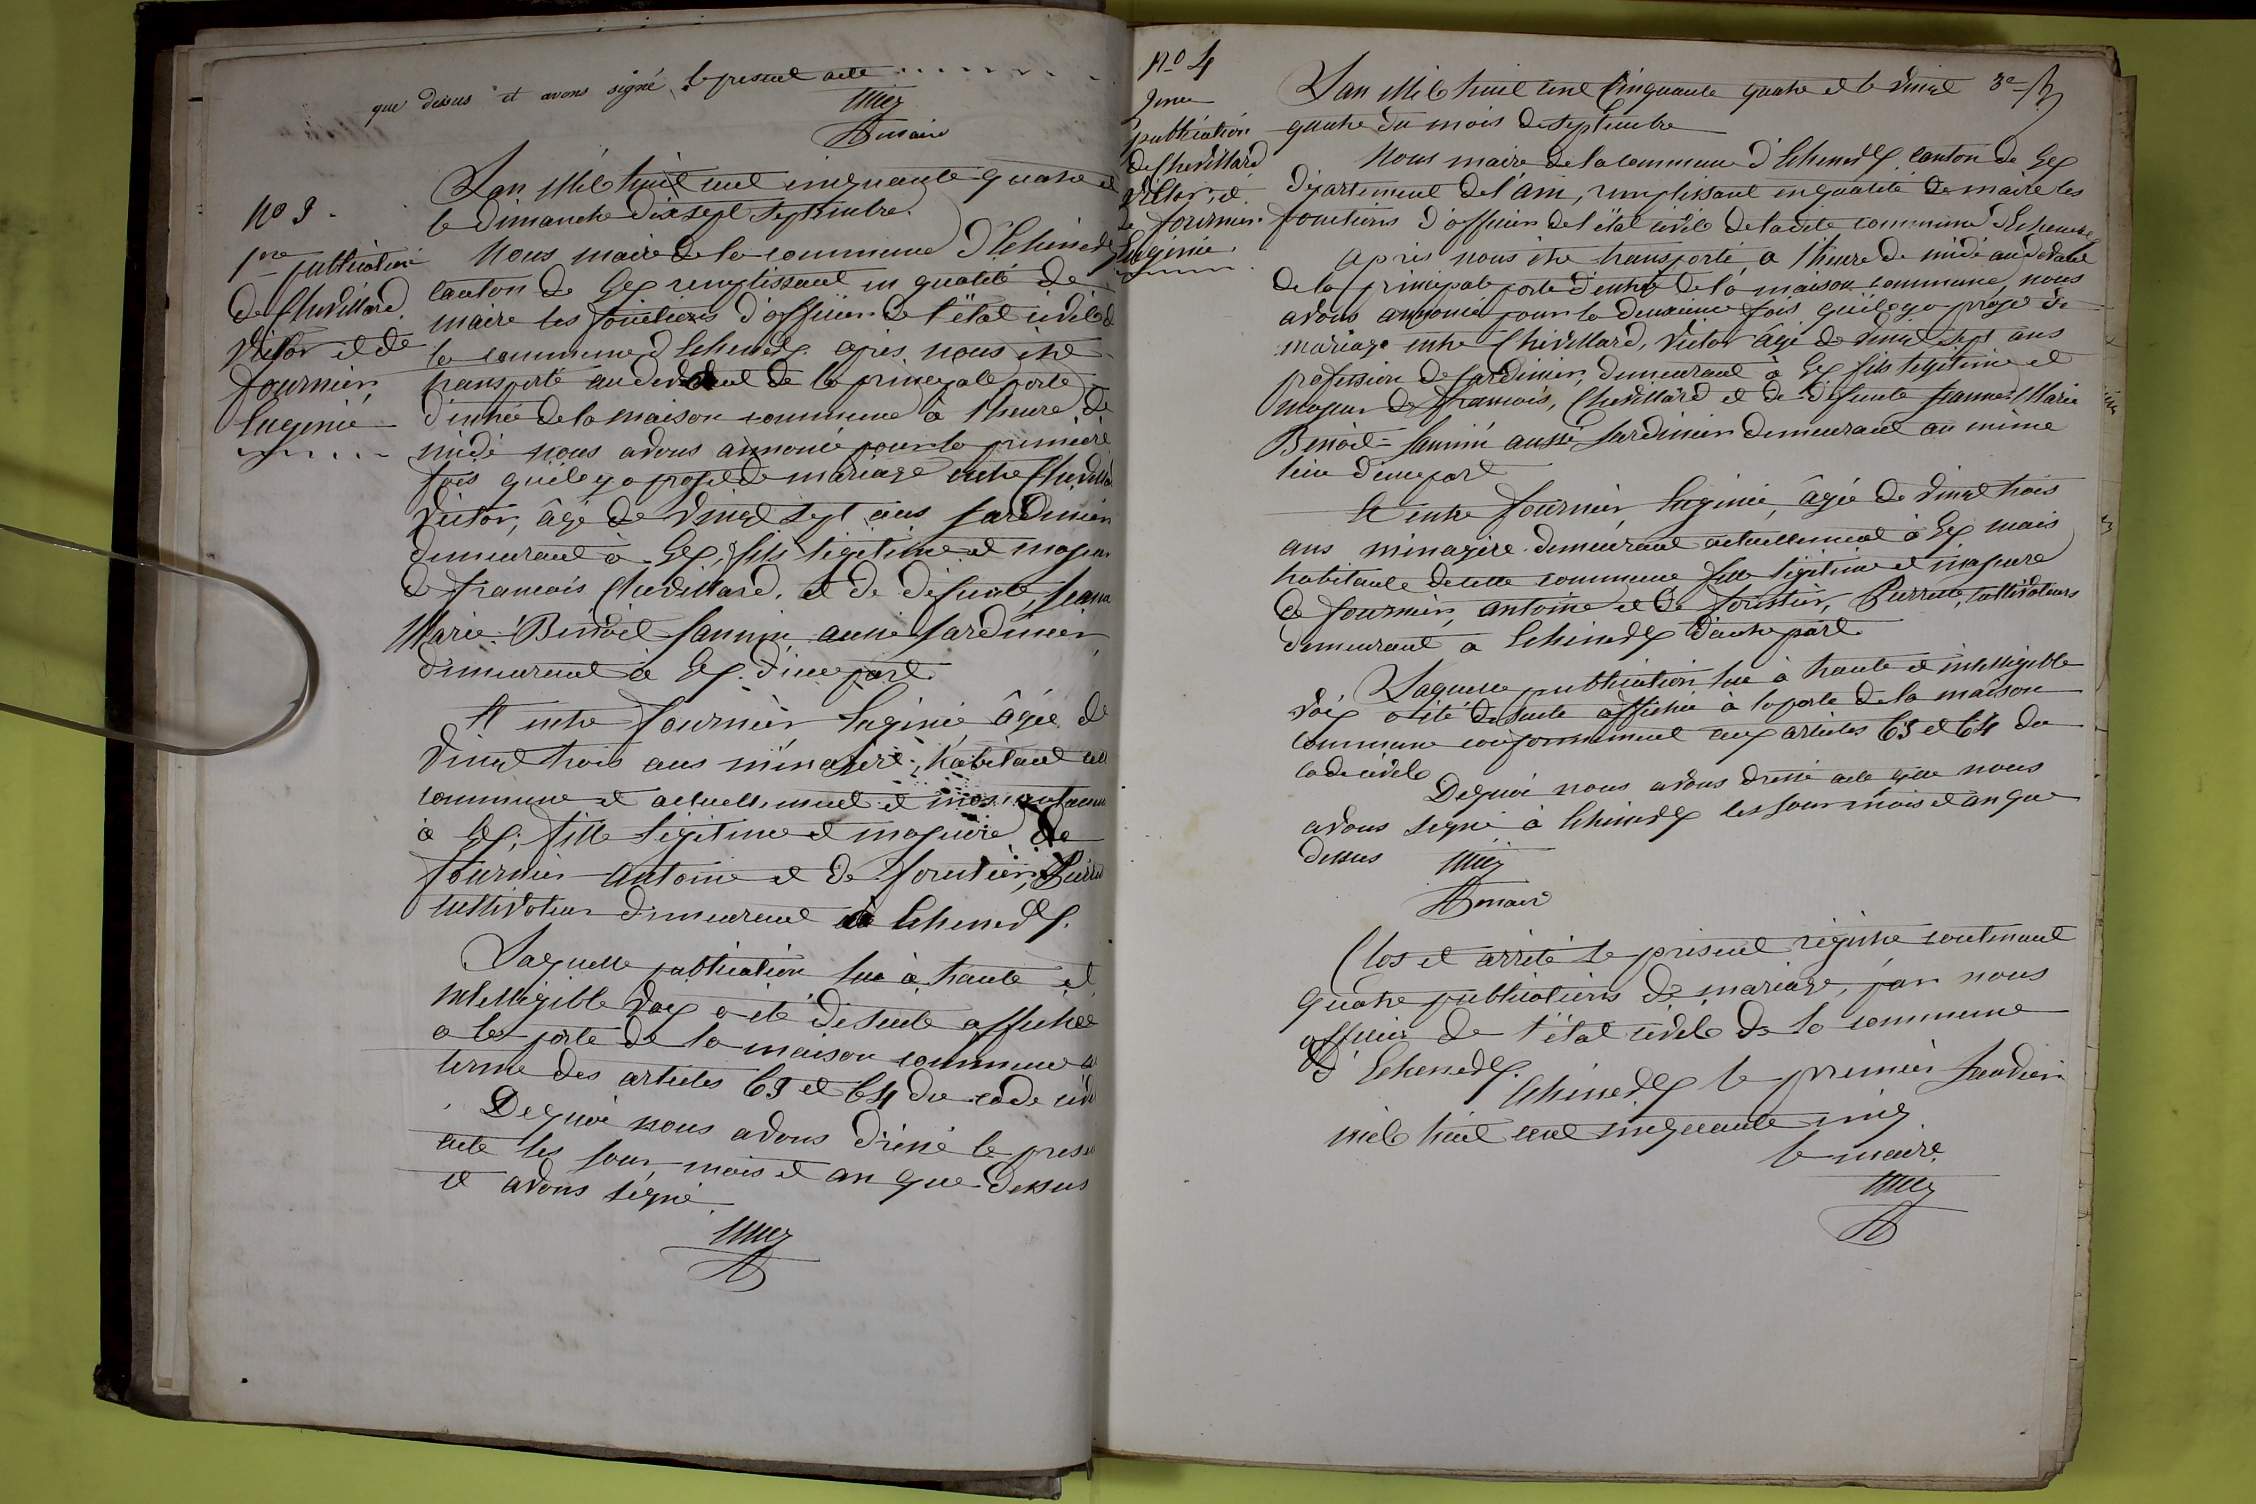 que dessus et avons signé le present acte
maire
No 3
1ere publication
de Chevillard
Victor et de
fournier
Eugenie
L'an Mil huit cent cinquante quatre et
le dimanche dix sept septembre
Nous maire de la commune d'Echenevex
canton de Gex remplissant en qualité de
maire les fonctions d'officier de l'état civil de
la commune d'Echenevex après nous être
transporté au devant de la principale porte
d'entrée de la maison commune à l'heure de
midi nous avons annoncé pour la première
fois qu'il y a projet de mariage entre Chevillard
Victor, âgé de vingt sept ans jardinier
demeurant à Gex, fils légitime et majeur
de francois Chevillard, et de défunte, Jeanne
Marie Benoit aussi jardinier
demeurant à Gex d'une part
Et entre fournier Eugenie âgée de
vingt trois ans ménagère, habitant
commune et actuellement et
à Gex, fille légitime et majeure de
fournier Antoine et de forestier,
cultivateur demeurant à Echenevex.
Laquelle publication lue à haute et
intelligible voix a été de suite affichée
a la porte de la maison commune
terme des articles 63 et 64 du code civil
De quoi nous avons dressé le present
acte les jour, mois et an que dessus
et avons signé
No 4
2eme
publication
de Chevillard
Victor, et
de fournier
Eugénie.
L'an Mil huit cent cinquante quatre et le vingt 3e
quatre du mois de septembre
Nous maire de la commune d'Echenevex canton de Gex
département de l'ain, remplissant en qualité de maire les
fonctions d'officier de l'état civil de la dite commune d'Echenevex
après nous être transporté, a l'heure de midi au devant
de la principale porte d'entrée de la maison commune, nous
avons annoncé pour la deuxieme fois qu'il y a projet de
mariage entre Chevillard, Victor âgé de vingt sept ans
profession de jardinier, demeurant à Gex fils légitime et
majeur de francois, Chevillard et de défunte Jeanne Marie
Benoit aussi jardinier demeurant au même
lieu d'une part
Et entre fournier Eugénie, âgée de vingt trois
ans ménagère demeurant actuellement à Gex mais
habitante de cette commune fille légitime et majeure
de fournier, antoine et de forestier, Pierrette, cultivateurs
demeurant a Echenevex d'autre part.
Laquelle publication lue à haute et intelligible
voix a été de suite affichée à la porte de la maison
commune conformément aux articles 63 et 64 du
code civil
De quoi nous avons dressé acte que nous
avons signé à Echenevex les jour mois et an que
dessus
maire
Clos et arrêté le présent régistre contenant
quatre publications de mariage, par nous
officier de l'état civil de la commune
d'Echenevex.
Echenevex le premier Janvier
mil huit cent cinquante cinq
le maire